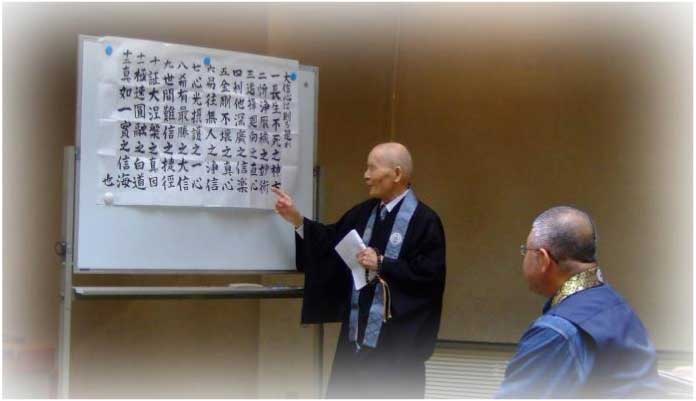 大信心は則ち是れ
一長生不死之神
二忻浄厭穢之妙術
三選擇廻向之直心
四利他深廣之信楽
五金剛不壊之真心
六易往無人之浄信
七心光摂護之一心
八希有最勝之大信
九世間難信之捷径
十証大涅槃之真因
十一極速圓融之白道
十二真如一實之信海
也